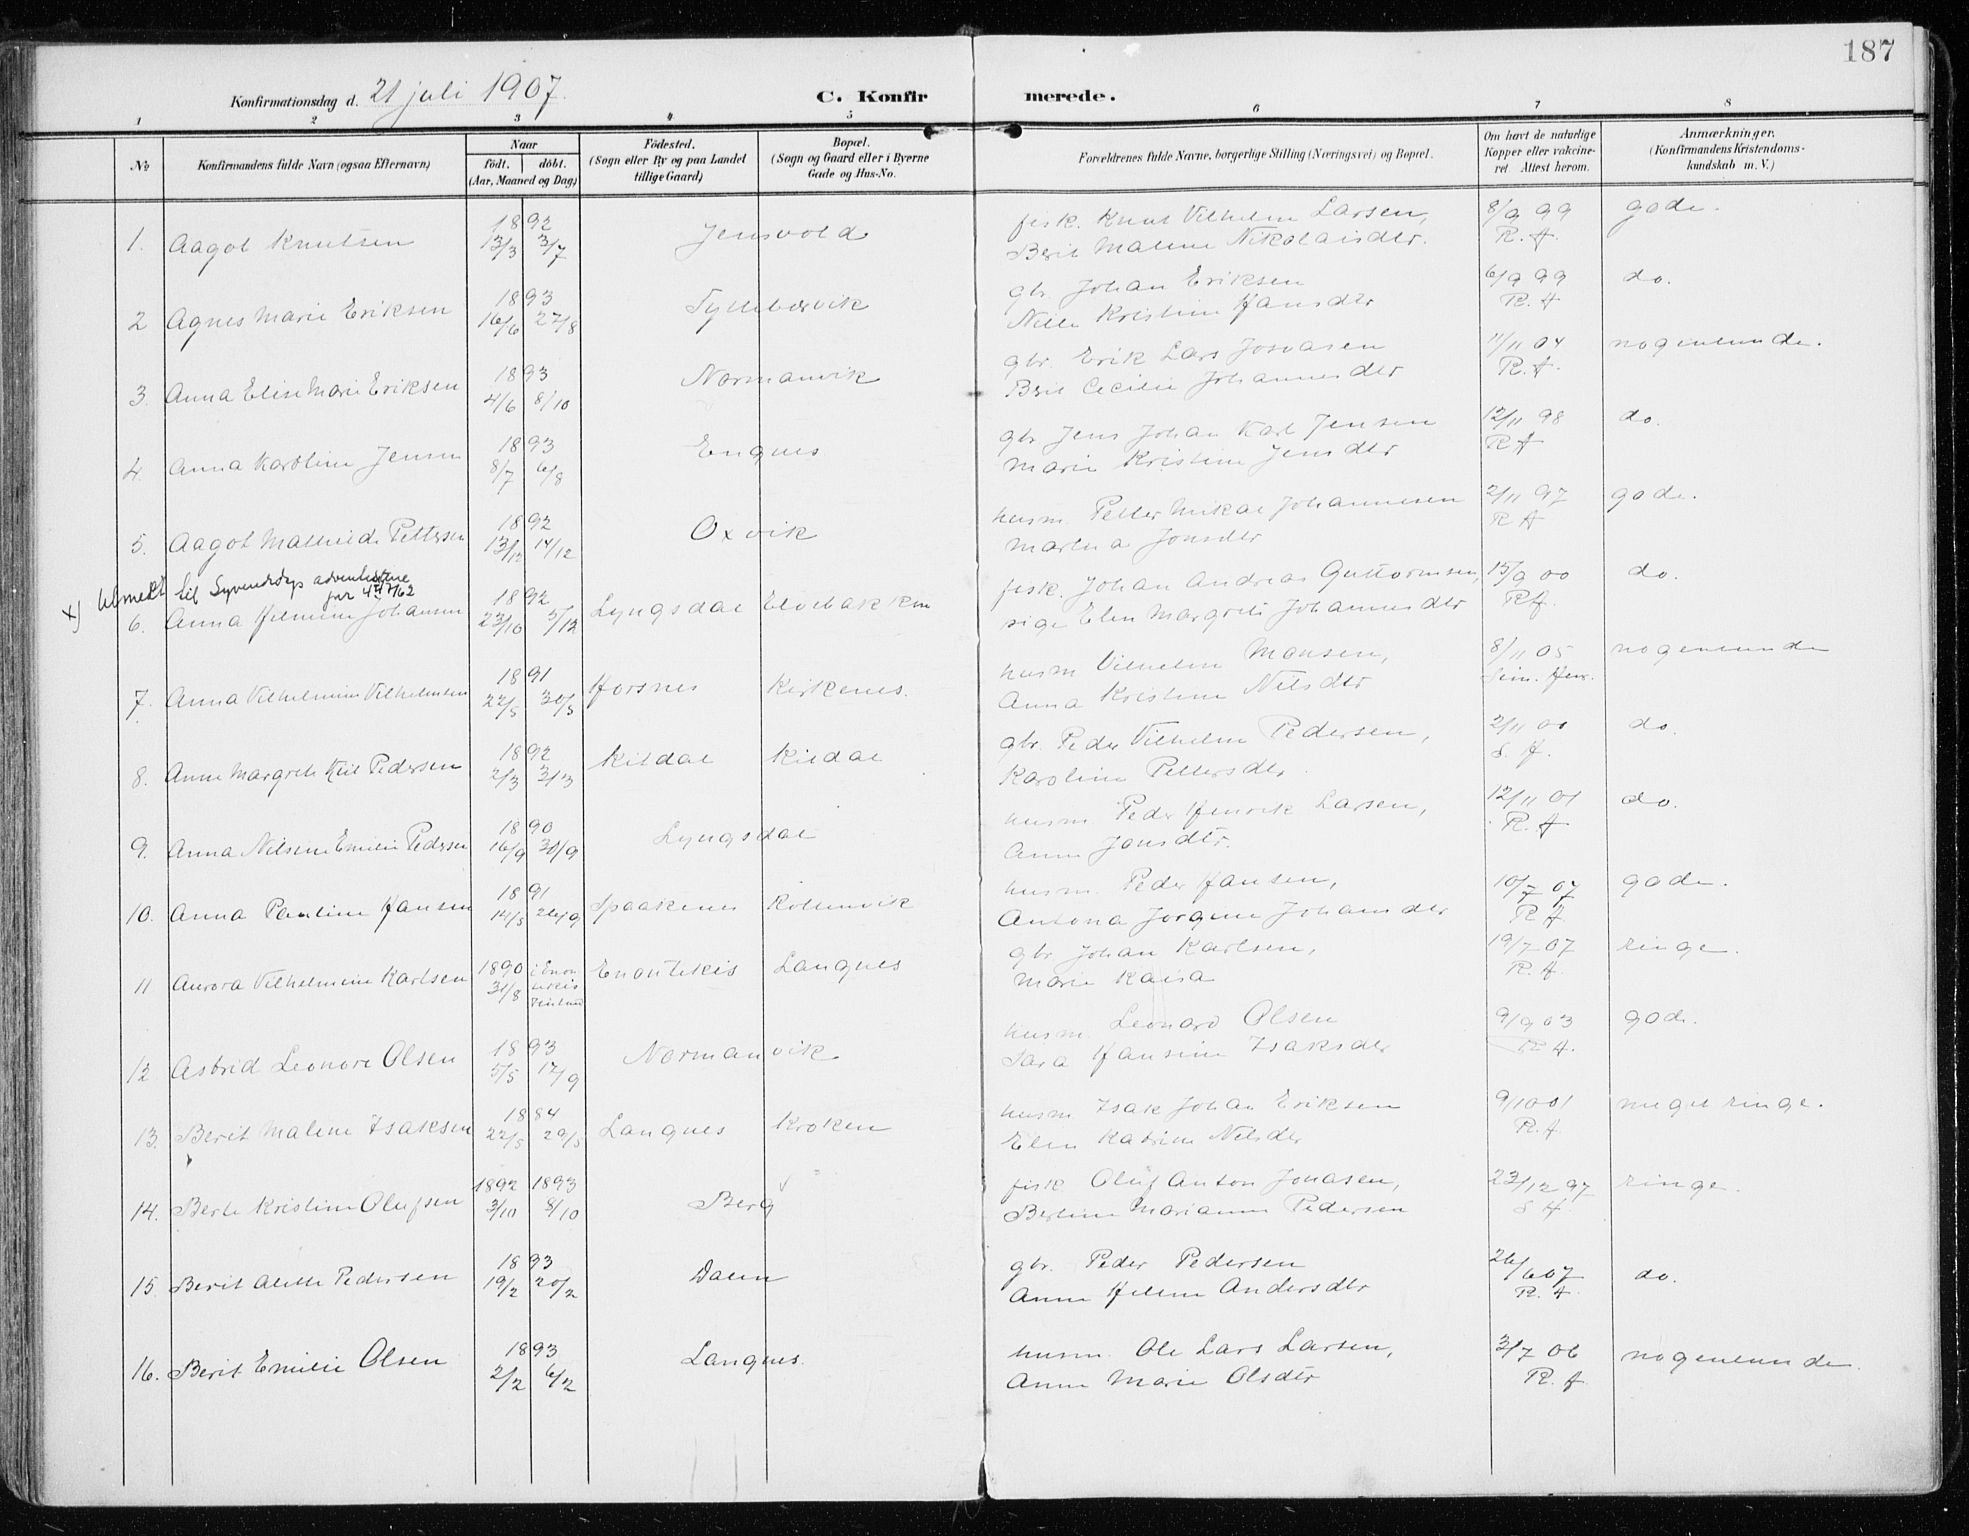 187
Konfirmationsdag d. 21 juli 1907.
C. Konfirmerede.
1 2 3 4 5 6 7 8
No
Konfirmandens fulde Navn (ogsaa Efternavn)
Naar
födt. döbt.
(Aar, Maaned og Dag)
Födested.
(Sogn eller By og paa Landet
tillige Gaard)
Bopæl.
(Sogn og Gaard eller i Byerne
Gade og Hus-No.
Forældrenes fulde Navne, borgerlige Stilling (Næringsvei) og Bopæl.
Om havt de naturlige
Kopper eller vakcine-
ret. Attest herom.
Anmærkninger.
(Konfirmandens Kristendoms-
kundskab m. V.)
1. Aagot Knutsen 1892 13/3 3/7 Jensvold fisk. Knut Vilhelm Larsen, 8/9 99 gode.
Berit Malene Nikolaisdtr. R. H.
2 Agnes Marie Eriksen 1893 16/6 27/8 Tyttebærvik gbr. Johan Eriksen 6/9 99 do.
Nille Kristine Hansdtr R. H
3. Anna Elise Marie Eriksen 1893 4/6 8/10 Normanvik gbr. Erik Lars Josvasen 11/11 04 nogenlunde.
Brit Cecilie Johannesdtr R. H.
4. Anna Karoline Jensen 1893 8/7 6/8 Engnes gbr Jens Johan Karl Jensen 12/11 98 do.
Marie Kristine Jensdtr R H
5. Aagot Mathilde Pettersen 1892 13/12 14/12 Oxvik husm. Petter Mikal Johannesen 2/11 97 gode.
Martha Jonsdtr R H
x) utmeldt til Syvendedags adventistene
pr 4/7/62
6. Anna Helmine Johansen 1892 23/10 3/12 Lyngsdal Elvebakken fisk. Johan Andreas Guttormsen, 15/9 00 do.
sige Elen Margrete Johannesdtr R H.
7. Anna Vilhelmine Vilhelmsen 1891 22/5 30/5 Horsnes Kirkenes. husm Vilhelm Monsen, 8/11 05 nogenlunde
Anna Kristine Nilsdtr Sim. Hen.
8. Anne Margrete Keil Pedersen 1892 2/3 3/13 Kildal Kildal gbr. Peder Vilhelm Pedersen, 2/11 00 do.
Karoline Pettersdtr. S. H.
9. Anna Nilsene Emilie Pedersen 1890 16/9 30/9 Lyngsdal husm. Peder Henrik Larsen, 12/11 01 do.
Anne Jonsdtr. R. H
10. Anna Pauline Hansen 1891 14/5 26/9 Spaakenes Rotenvik husm. Peder Hansen, 10/7 07 gode.
Antona Jorgine Johansdtr R H.
11 Aurora Vilhelmine Karlsen 1890 31/8 i Enontekis Finland Enontekis Langnes gbr Johan Karlsen, 19/7 07 ringe.
Marie Kaisa R. H.
12. Astrid Leonore Olsen 1893 5/5 17/9 Normanvik husm. Leonard Olsen 9/9 03 gode.
Sara Hansine Isaksdtr R H.
13. Berit Malene Isaksen 1884 22/5 29/5 Langnes Kroken husm. Isak Johan Eriksen 9/10 01 meget ringe.
Elen Katrine Nilsdtr R. H.
14. Berte Kristine Olufsen 1892 1893 3/10 8/10 Berg fisk Oluf Anton Jonasen, 23/12 97 ringe.
Bertine Marianne Pedersen S H.
15. Berit Alette Pedersen 1893 19/2 20/2 Dalen gbr. Peder Pedersen 26/6 07 do.
Anne Helene Andersdtr R. H.
16. Berit Emilie Olsen 1893 2/2 6/2 Langnes. husm. Ole Lars Larsen, 3/7 06 nogenlunde.
Anne Marie Olsdtr R. H.